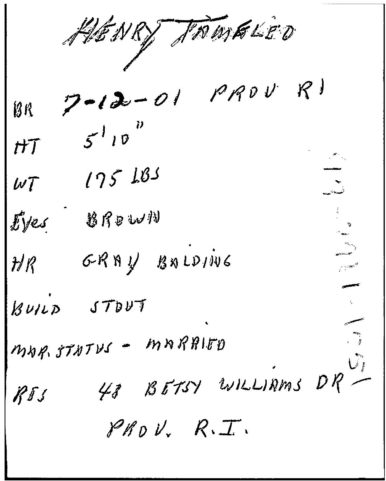 HENRY TAMELEO
BR 7-12-01 PROV RI
HT 5'10"
WT 175 LBS
Eyes BROWN
HR GRAY BALDING
BUILD STOUT
MAR. STATUS - MARRIED
RES 43 BETSY WILLIAMS DR
PROV. R.I.